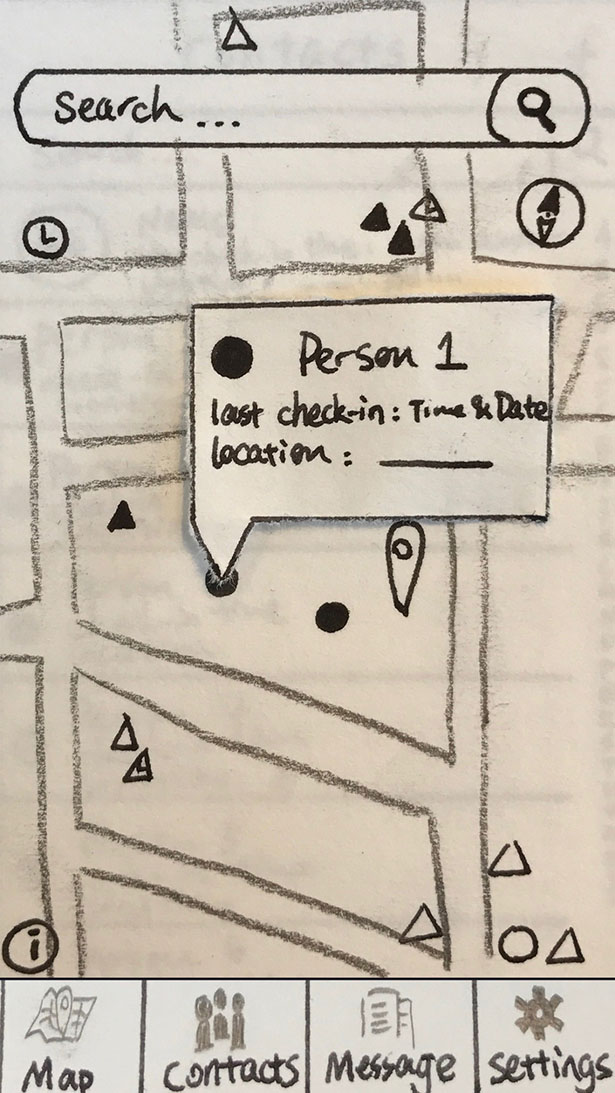 Search ...
Person 1
last check-in: Time & Date
location:
i
Map
Contacts
Message
Settings